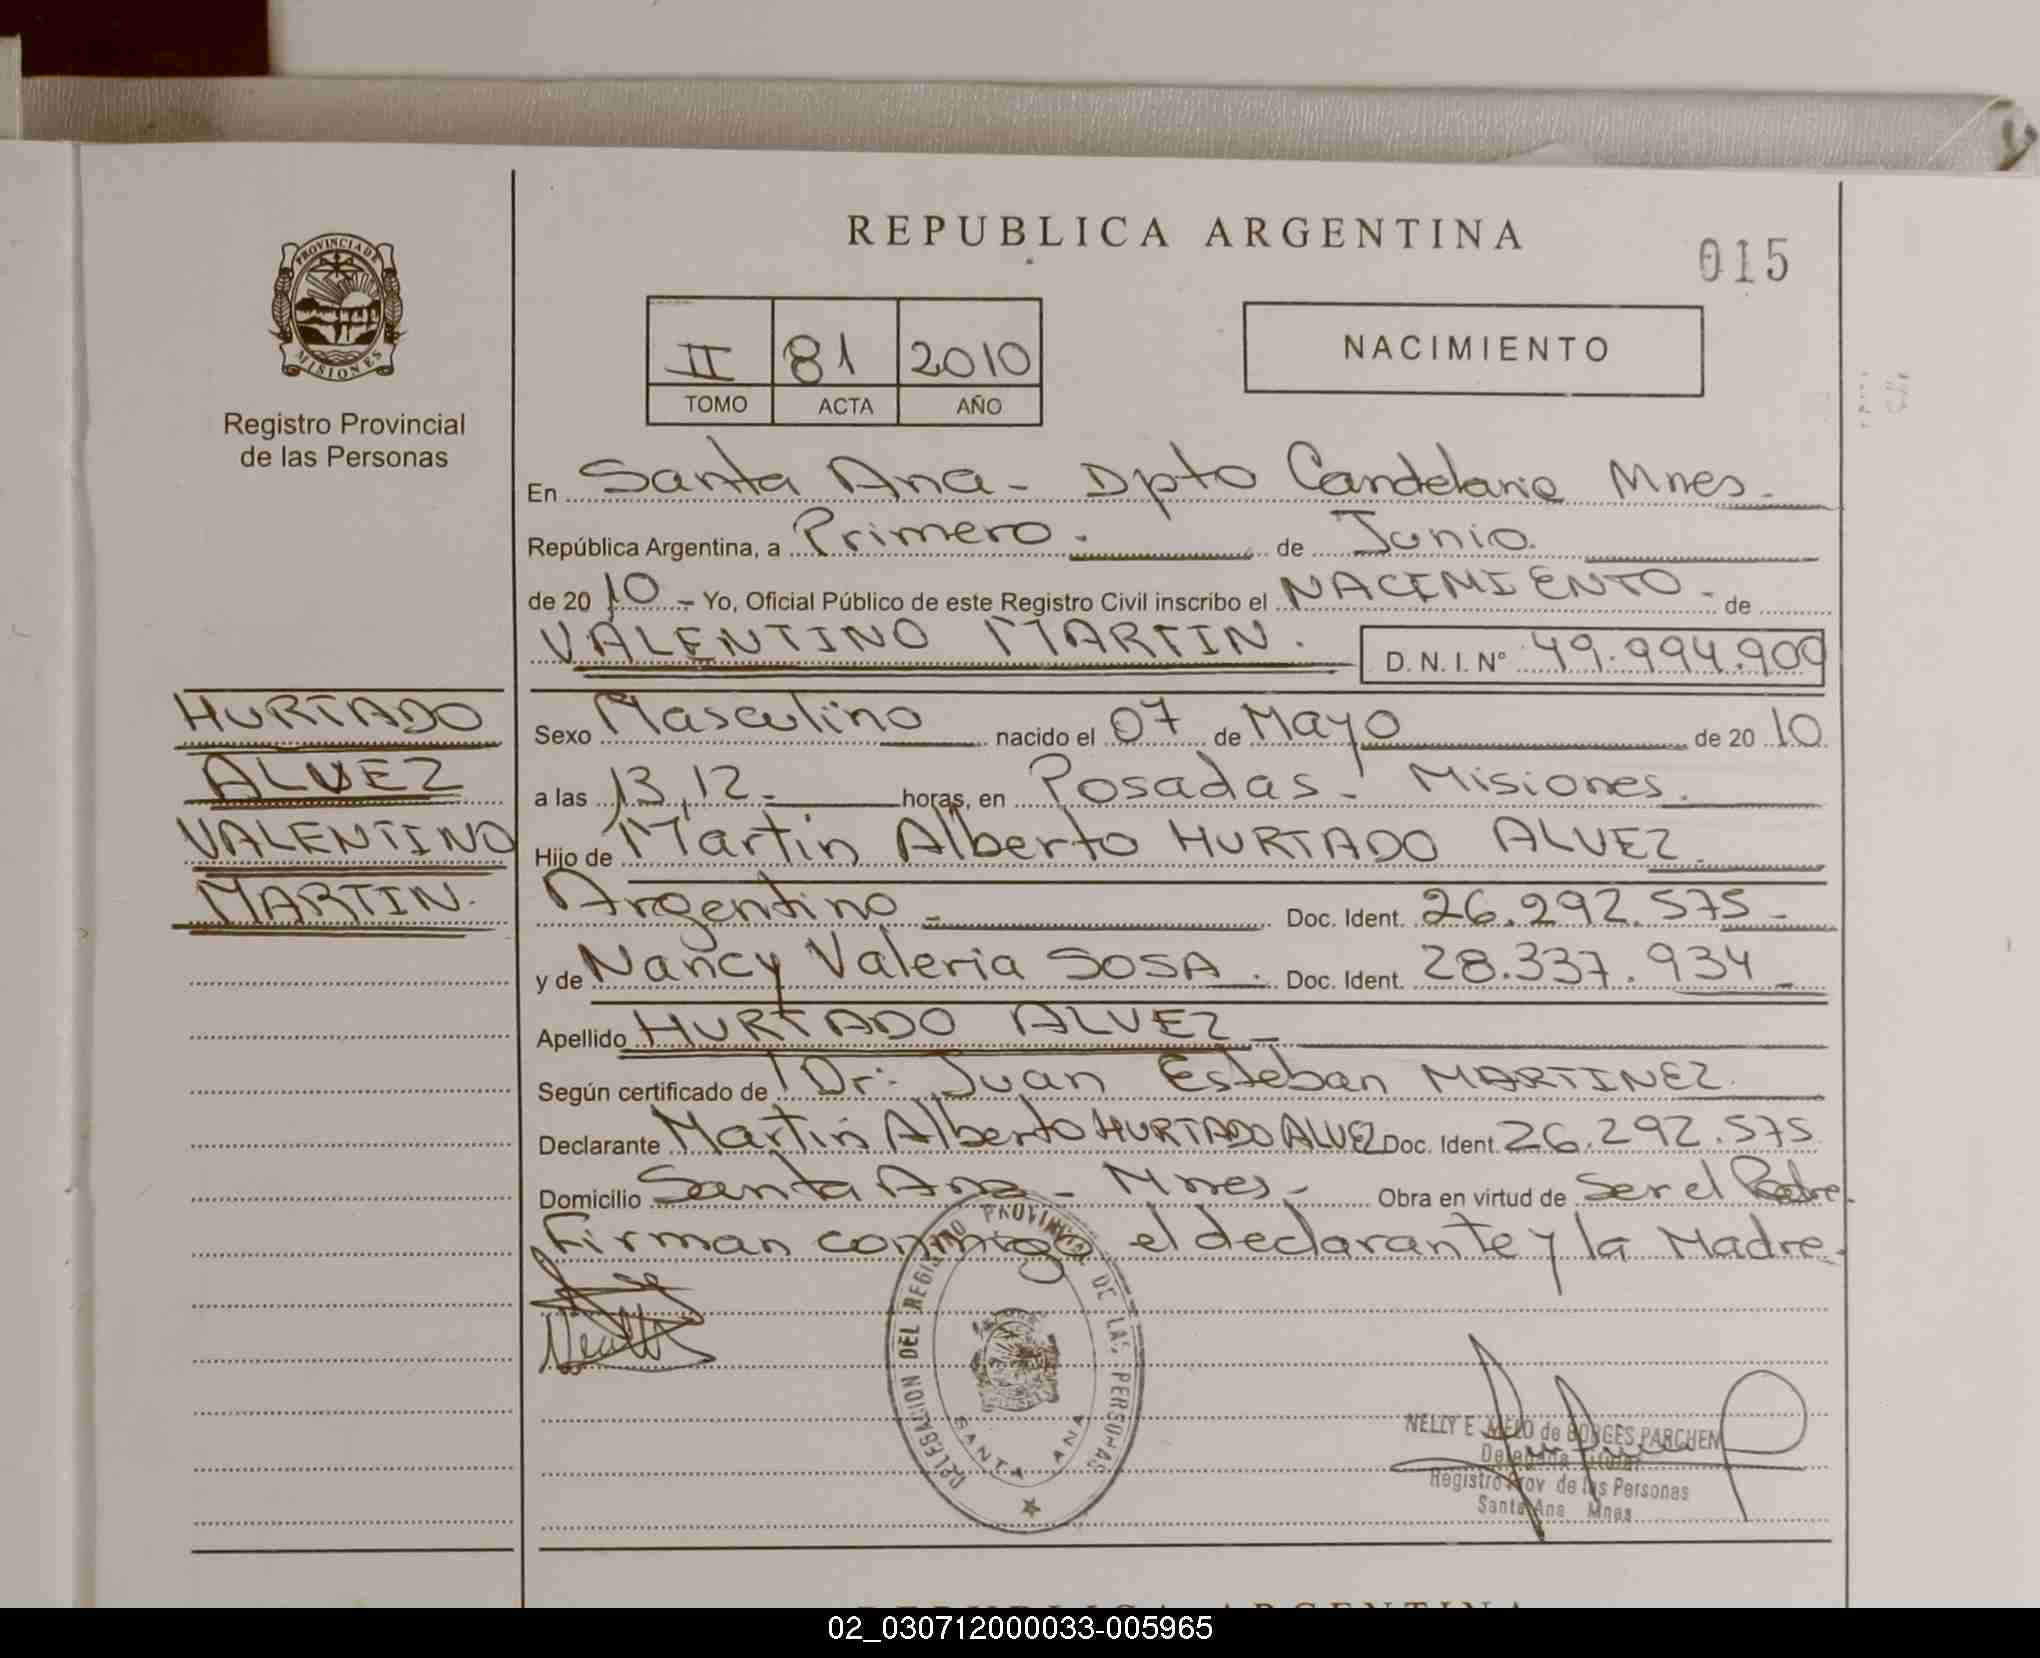 REPUBLICA ARGENTINA
015
PROVINCIA DE
MISIONES
Registro Provincial
de las Personas
II 81 2010
TOMO ACTA AÑO
NACIMIENTO
En Santa Ana - Dpto Candelaria Mnes -
República Argentina, a Primero - de Junio.
de 20 10 - Yo, Oficial Público de este Registro Civil inscribo el NACIMIENTO - de
VALENTINO MARTIN. D. N. I. Nº 49.994.909
HURTADO
ALVEZ
VALENTINO
MARTIN.
Sexo Masculino nacido el 07 de Mayo de 20 10
a las 13,12 - horas, en Posadas - Misiones.
Hijo de Martin Alberto HURTADO ALVEZ.
Argentino - Doc. Ident. 26.292.575 -
y de Nancy Valeria SOSA - Doc. Ident. 28.337.934 -
Apellido HURTADO ALVEZ -
Según certificado de Dr: Juan Esteban MARTINEZ.
Declarante Martin Alberto HURTADO ALVEZ Doc. Ident. 26.292.575
Domicilio Santa Ana - Mnes - Obra en virtud de Ser el Padre.
Firman conmigo el declarante y la Madre.
DELEGACION DEL REGISTRO PROVINCIAL DE LAS PERSONAS
SANTA ANA
NELLY E. MELO de BORGES PARCHEN
Delegada Titular
Registro Prov de las Personas
Santa Ana Mnes
REPUBLICA ARGENTINA
02_030712000033-005965